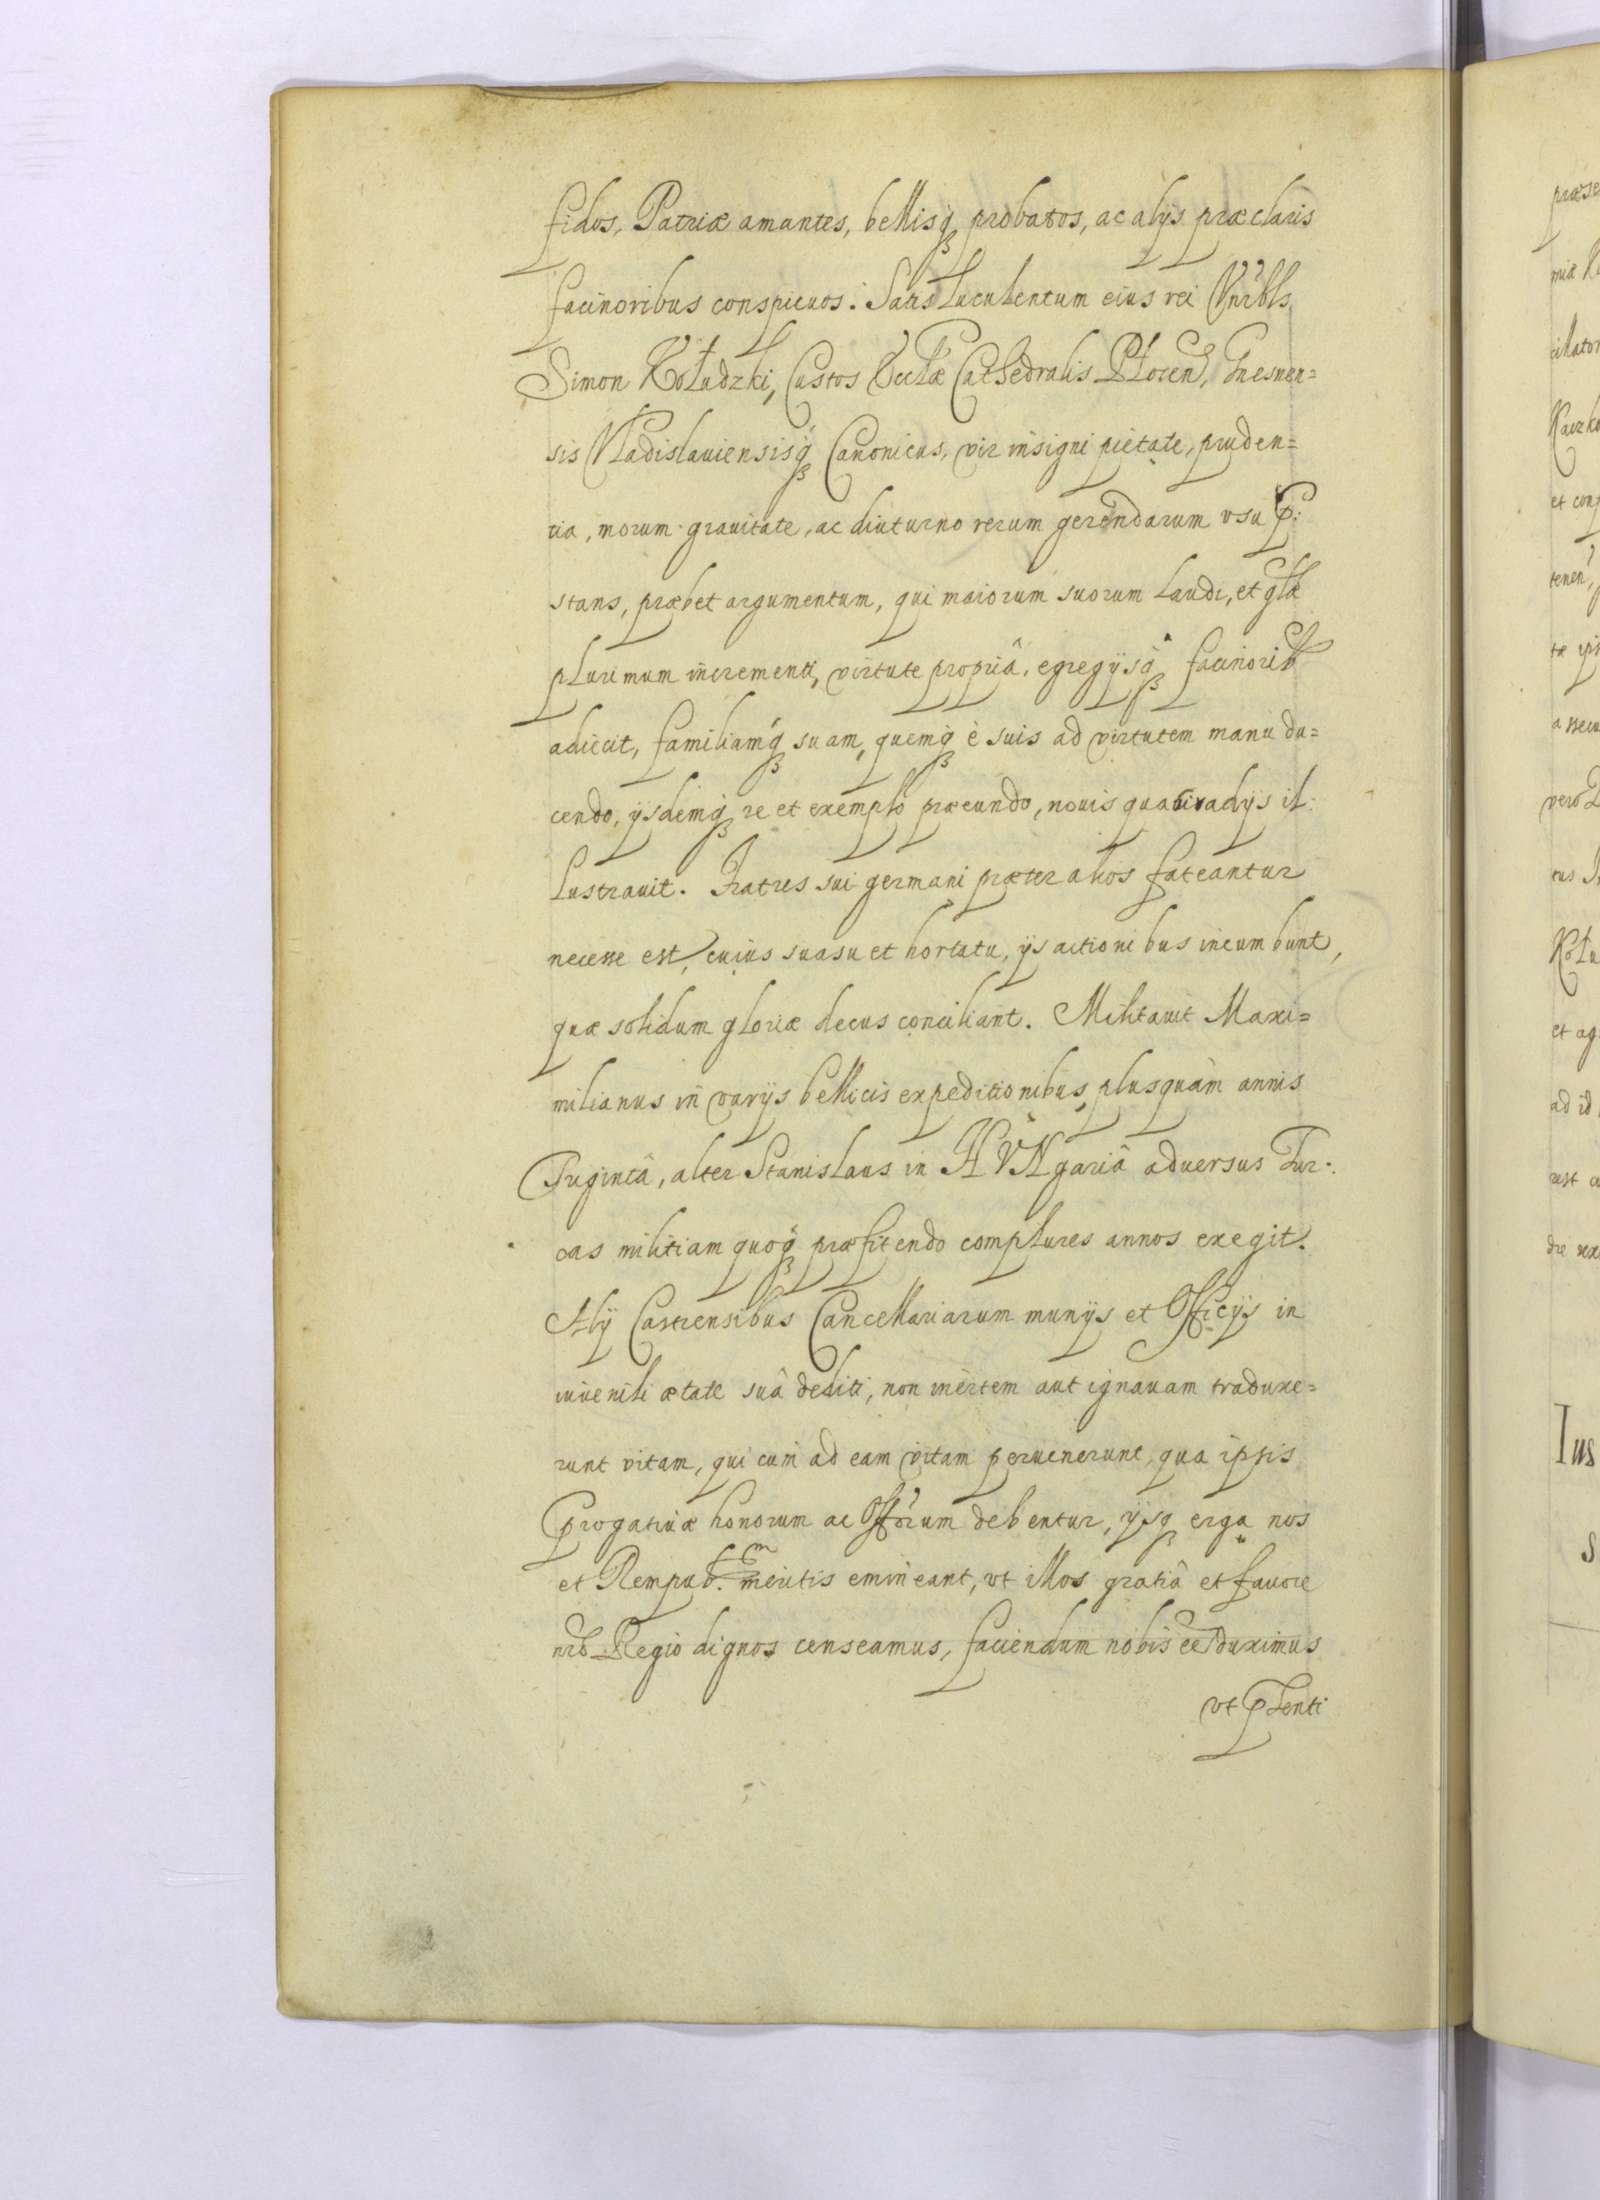 fidos, Patriæ amantes, bellisq́ꝫ probatos, ac alijs præclaris
facinoribus conspicuos: Satis luculentum eius rei Vnrbls
Simon Kołudzki, Custos Ecclæ Cathedralis Plocen, Gnesnen=
sis Vladislauiensisq́ꝫ Canonicus, vir insigni pietate, pruden=
tia, morum grauitate, ac diuturno rerum gerendarum vsu p:
stans, præbet argumentum, qui maiorum suorum laudi, et glæ
plurimum incrementi, virtute propriâ, egregijsq́ꝫ facinorib
adiecit, familiamq́ꝫ suam, quemq́ꝫ è suis ad virtutem manu du=
cendo, ijsdemq́ꝫ re et exemplo præeundo, nouis quasi radijs il:
lustrauit. Fratres sui germani præter alios fateantur
necesse est, cuius suasu et hortatu, ijs actionibus incumbunt,
quæ solidum gloriæ decus conciliant. Militauit Maxi=
milianus in varijs bellicis expeditionibus, plusquàm annis
Triginta, alter Stanislaus in HVNgariâ aduersus Tur:
cas militiam quoq́ꝫ profitendo complures annos exegit.
Alij Castrensibus Cancellariarum munijs et Officijs in
iuuenili ætate suâ dediti, non inertem aut ignauam traduxe=
runt vitam, qui cum ad eam vitam peruenerunt, qua ipsis
progatiuæ honorum ac Offõrum debentur, ijsqꝫ erga nos
et Rempub. meritis emineant, vt illos gratiâ et fauore
nrõ Regio dignos censeamus, faciendum nobis eẽ duximus
vt pnti
præse